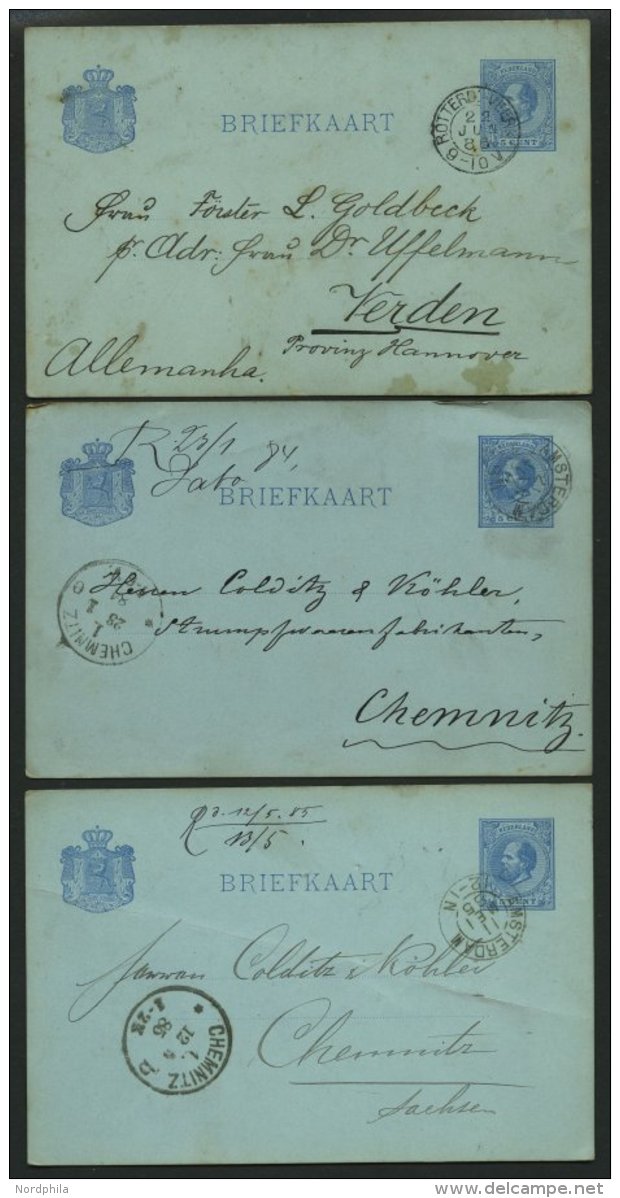 BRIEFKAART
NEDERLAND
5 CENT
22
JUN
10-6
Frau Förster L. Goldbeck
pr. Adr: Frau Dr. Uffelmann
Verden
Provinz Hannover
Allemanha.
R. 23/1 84,
BRIEFKAART
NEDERLAND
5 CENT
AMSTERDAM
CHEMNITZ
1
23
1
84
Herren Colditz & Köhler,
Strumpfwaarenfabrikanten,
Chemnitz.
12/5. 85
13/5.
BRIEFKAART
NEDERLAND
5 CENT
AMSTERDAM
Herren Colditz & Köhler
CHEMNITZ
1.
12
5
85
Chemnitz
Sachsen
Nordphila
delcampe.net